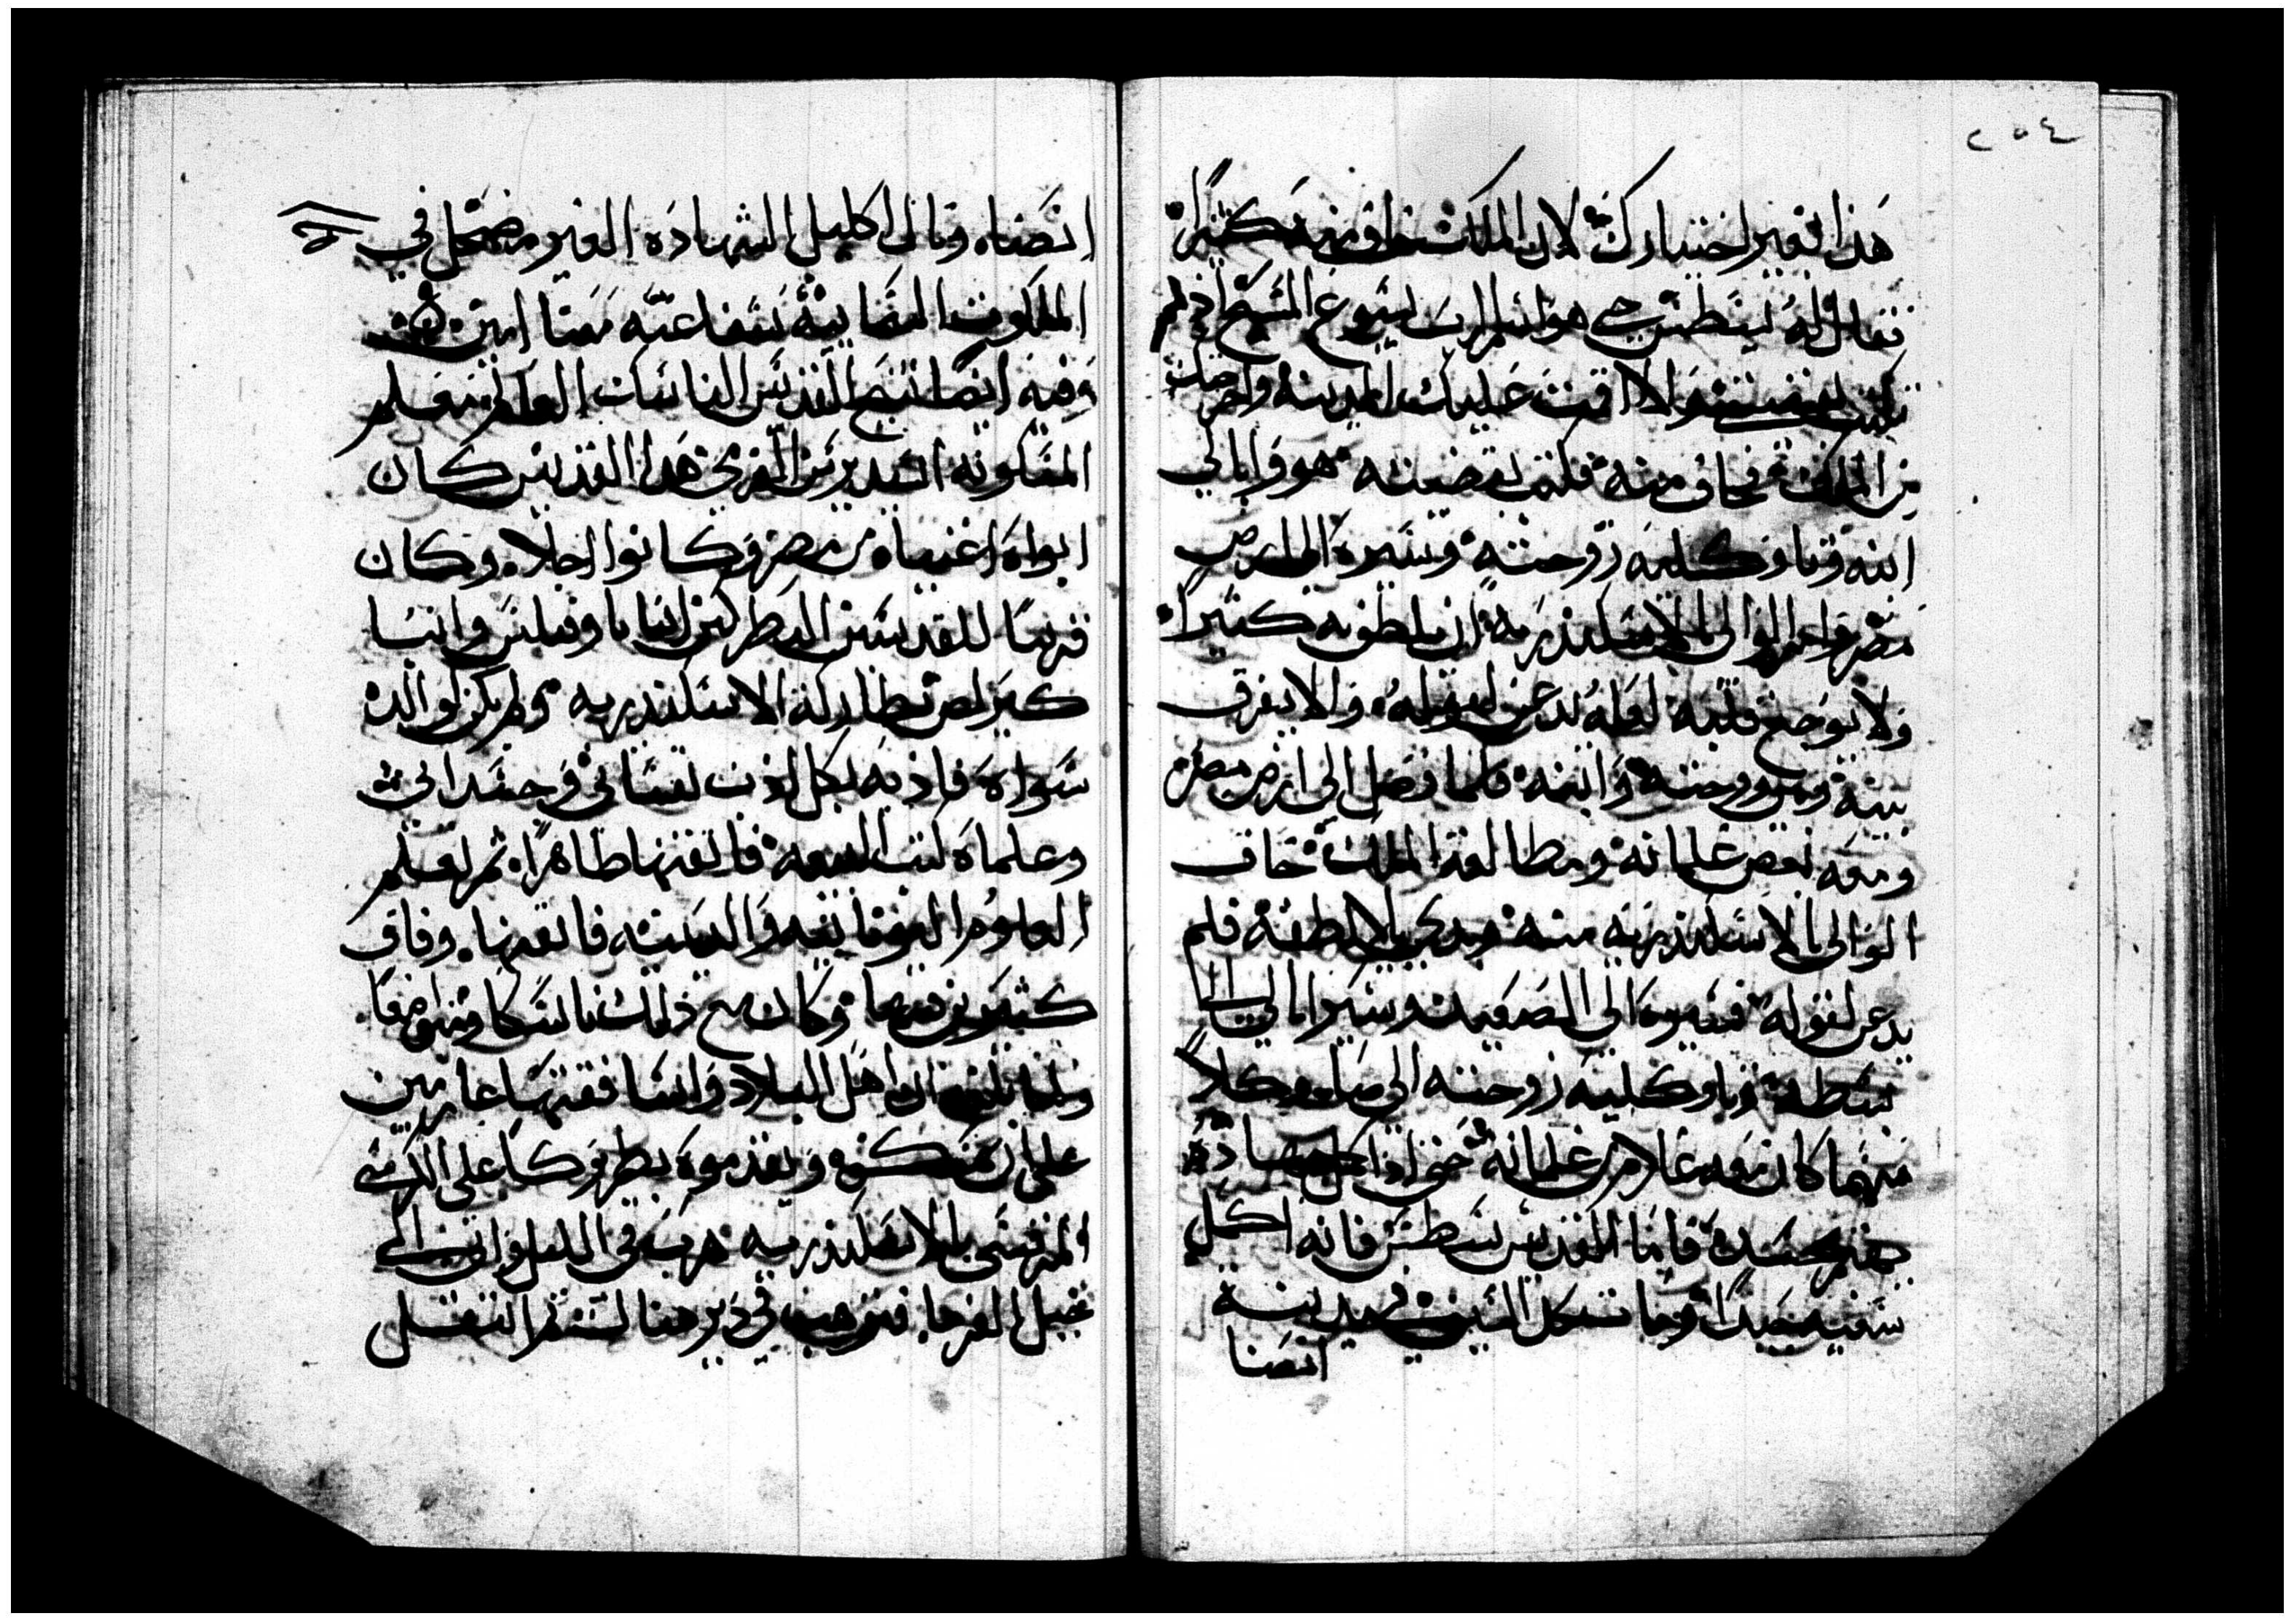 ٢٥٤
هذا بغير اختيارك لان الملك خاف منه كثيرا
فقال له يسطس حي هو اسم الرب يسوع المسيح اذ لم
تكتب بقضيتي والا اقمت عليك المدينة واخرجت
من الملك فخاف منه فكتب بقضيته هو وابالي
ابنه وثاوكليه زوجته وسيره الى ارض
مصر وامر الوالي بالاسكندريه ان يلطفوا به كثيرا
ولا يوجع قلبه لعله يدعن لقوله والا يفرق
بينه وبين زوجته وابنه فلما وصل الى ارض مصر
ومعه بعض غلمانه ومطالعة الملك خاف
الوالي بالاسكندريه منه وبدى يلاطفه فلم
يدعن لقوله فسيره الى الصعيد وسير ابالي الى
بسطه وثاوكليه زوجته الى صا وكلا
منهما كان معه غلام من غلمانه حتى اذا اكمل جهاده
يهتم بجسده فاما القديس يسطس فانه اكمل
سعيه جيدا وجا تحت حد السيف في مدينة
انصنا
انصناه ونال اكليل الشهاده الغير مضمحل في
الملكوت السمايية شفاعته معنا امين
وفيه ايضا تنيح القديس الناسك العالم معلم
المسكونه اندريس الفرمي هذا القديس كان
ابواه اغنياه من مصر وكانوا اجلاه وكان
قريبا للقديسين البطركين انبا تاوفيلس وانبا
كيرلص بطاركة الاسكندريه ولم يكن لوالديه
سواه فاذبه بكل ادب نفساني وجسداني
وعلماه كتب البيعه فاتقنها ظاهرا ثم تعلم
العلوم اليونانيه والدينيه فاتقنها وفاق
كثيرين فيها وكان مع ذلك ناسكا متواضعا
ولما بلغه ان اهل البلاد والساقفتها عازمين
على ان يمسكوه ويقدموه بطريركا على الكرسي
المرقسي بالاسكندريه هرب في الليل واتى الى
جبل الفرما فترهب في دير هناك ثم انتقل